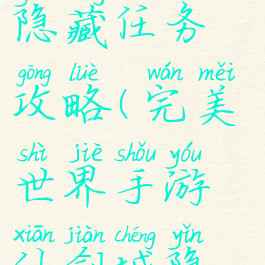 隐藏任务
gōng lüè wán měi
攻略(完美
shì jiè shǒu yóu
世界手游
xiān jiàn chéng yǐn